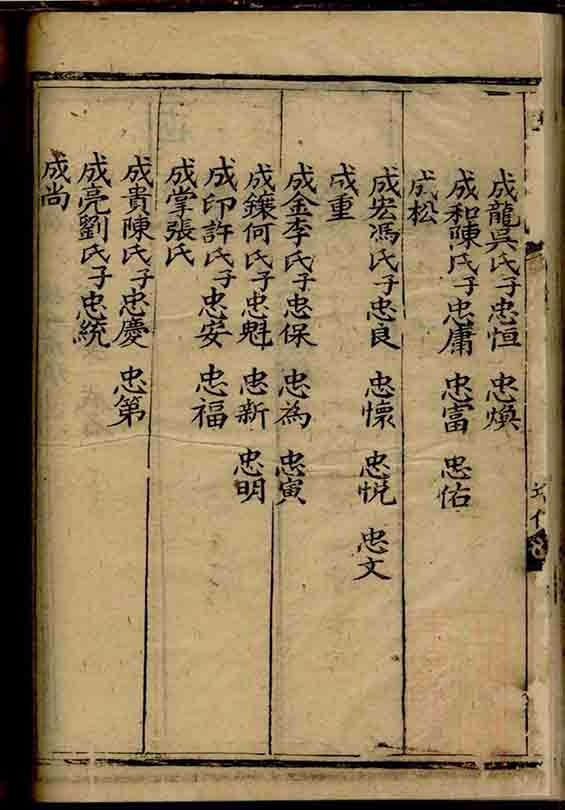 成龍吳氏子忠恒 忠煥
成和陳氏子忠庸 忠富 忠佑
成松
成宏馮氏子忠良 忠懷 忠悅 忠文
成重
成金李氏子忠保 忠為 忠寅
成鑲何氏子忠魁 忠新 忠明
成印許氏子忠安 忠福
成掌張氏
成貴陳氏子忠慶 忠第
成亮劉氏子忠統
成尚